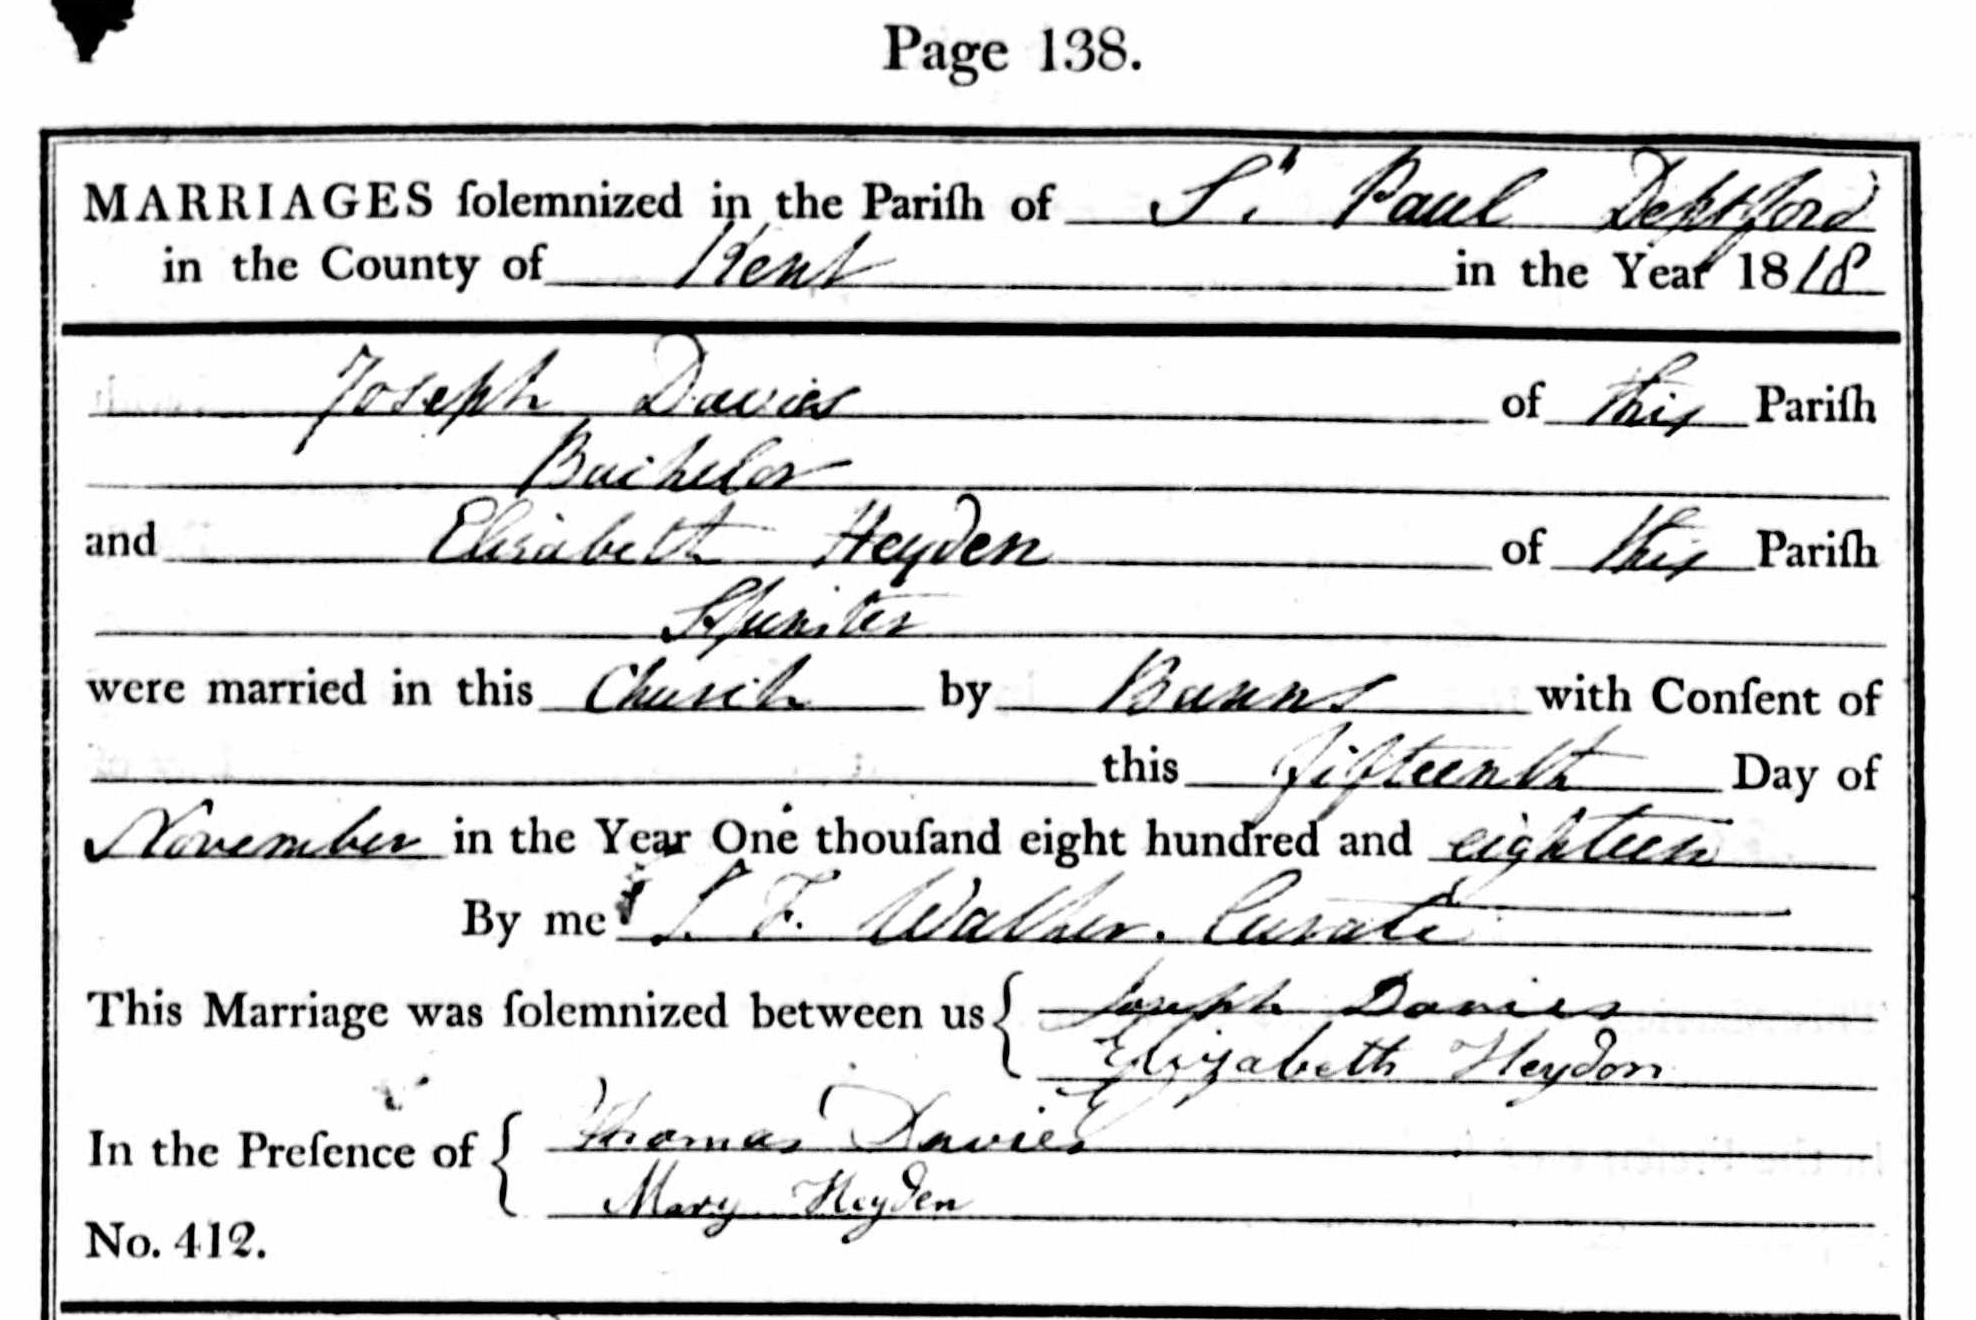 Page 138.
MARRIAGES ſolemnized in the Pariſh of St. Paul Deptford
in the County of Kent in the Year 1818
Joseph Davies of this Pariſh
Bachelor
and Elizabeth Heyden of this Pariſh
Spinster
were married in this Church by Banns with Conſent of
this fifteenth Day of
November in the Year One thouſand eight hundred and eighteen
By me F. Walker. Curate
This Marriage was ſolemnized between us { Joseph Davies
Elizabeth Heydon
In the Preſence of { Thomas Davies
Mary Heyden
No. 412.